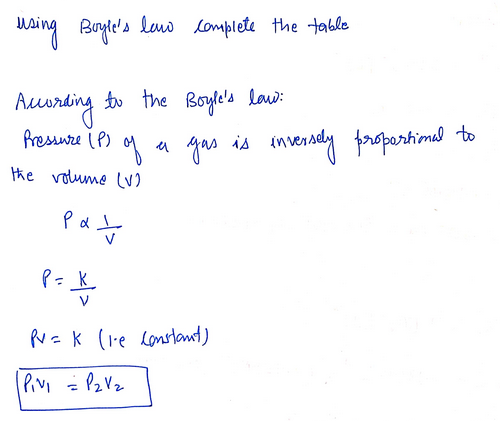 using Boyle's law complete the table
According to the Boyle's law:
Pressure (P) of a gas is inversely proportional to
the volume (V)
P ∝ 1/V
P = K/V
PV = K (i.e constant)
P₁V₁ = P₂V₂